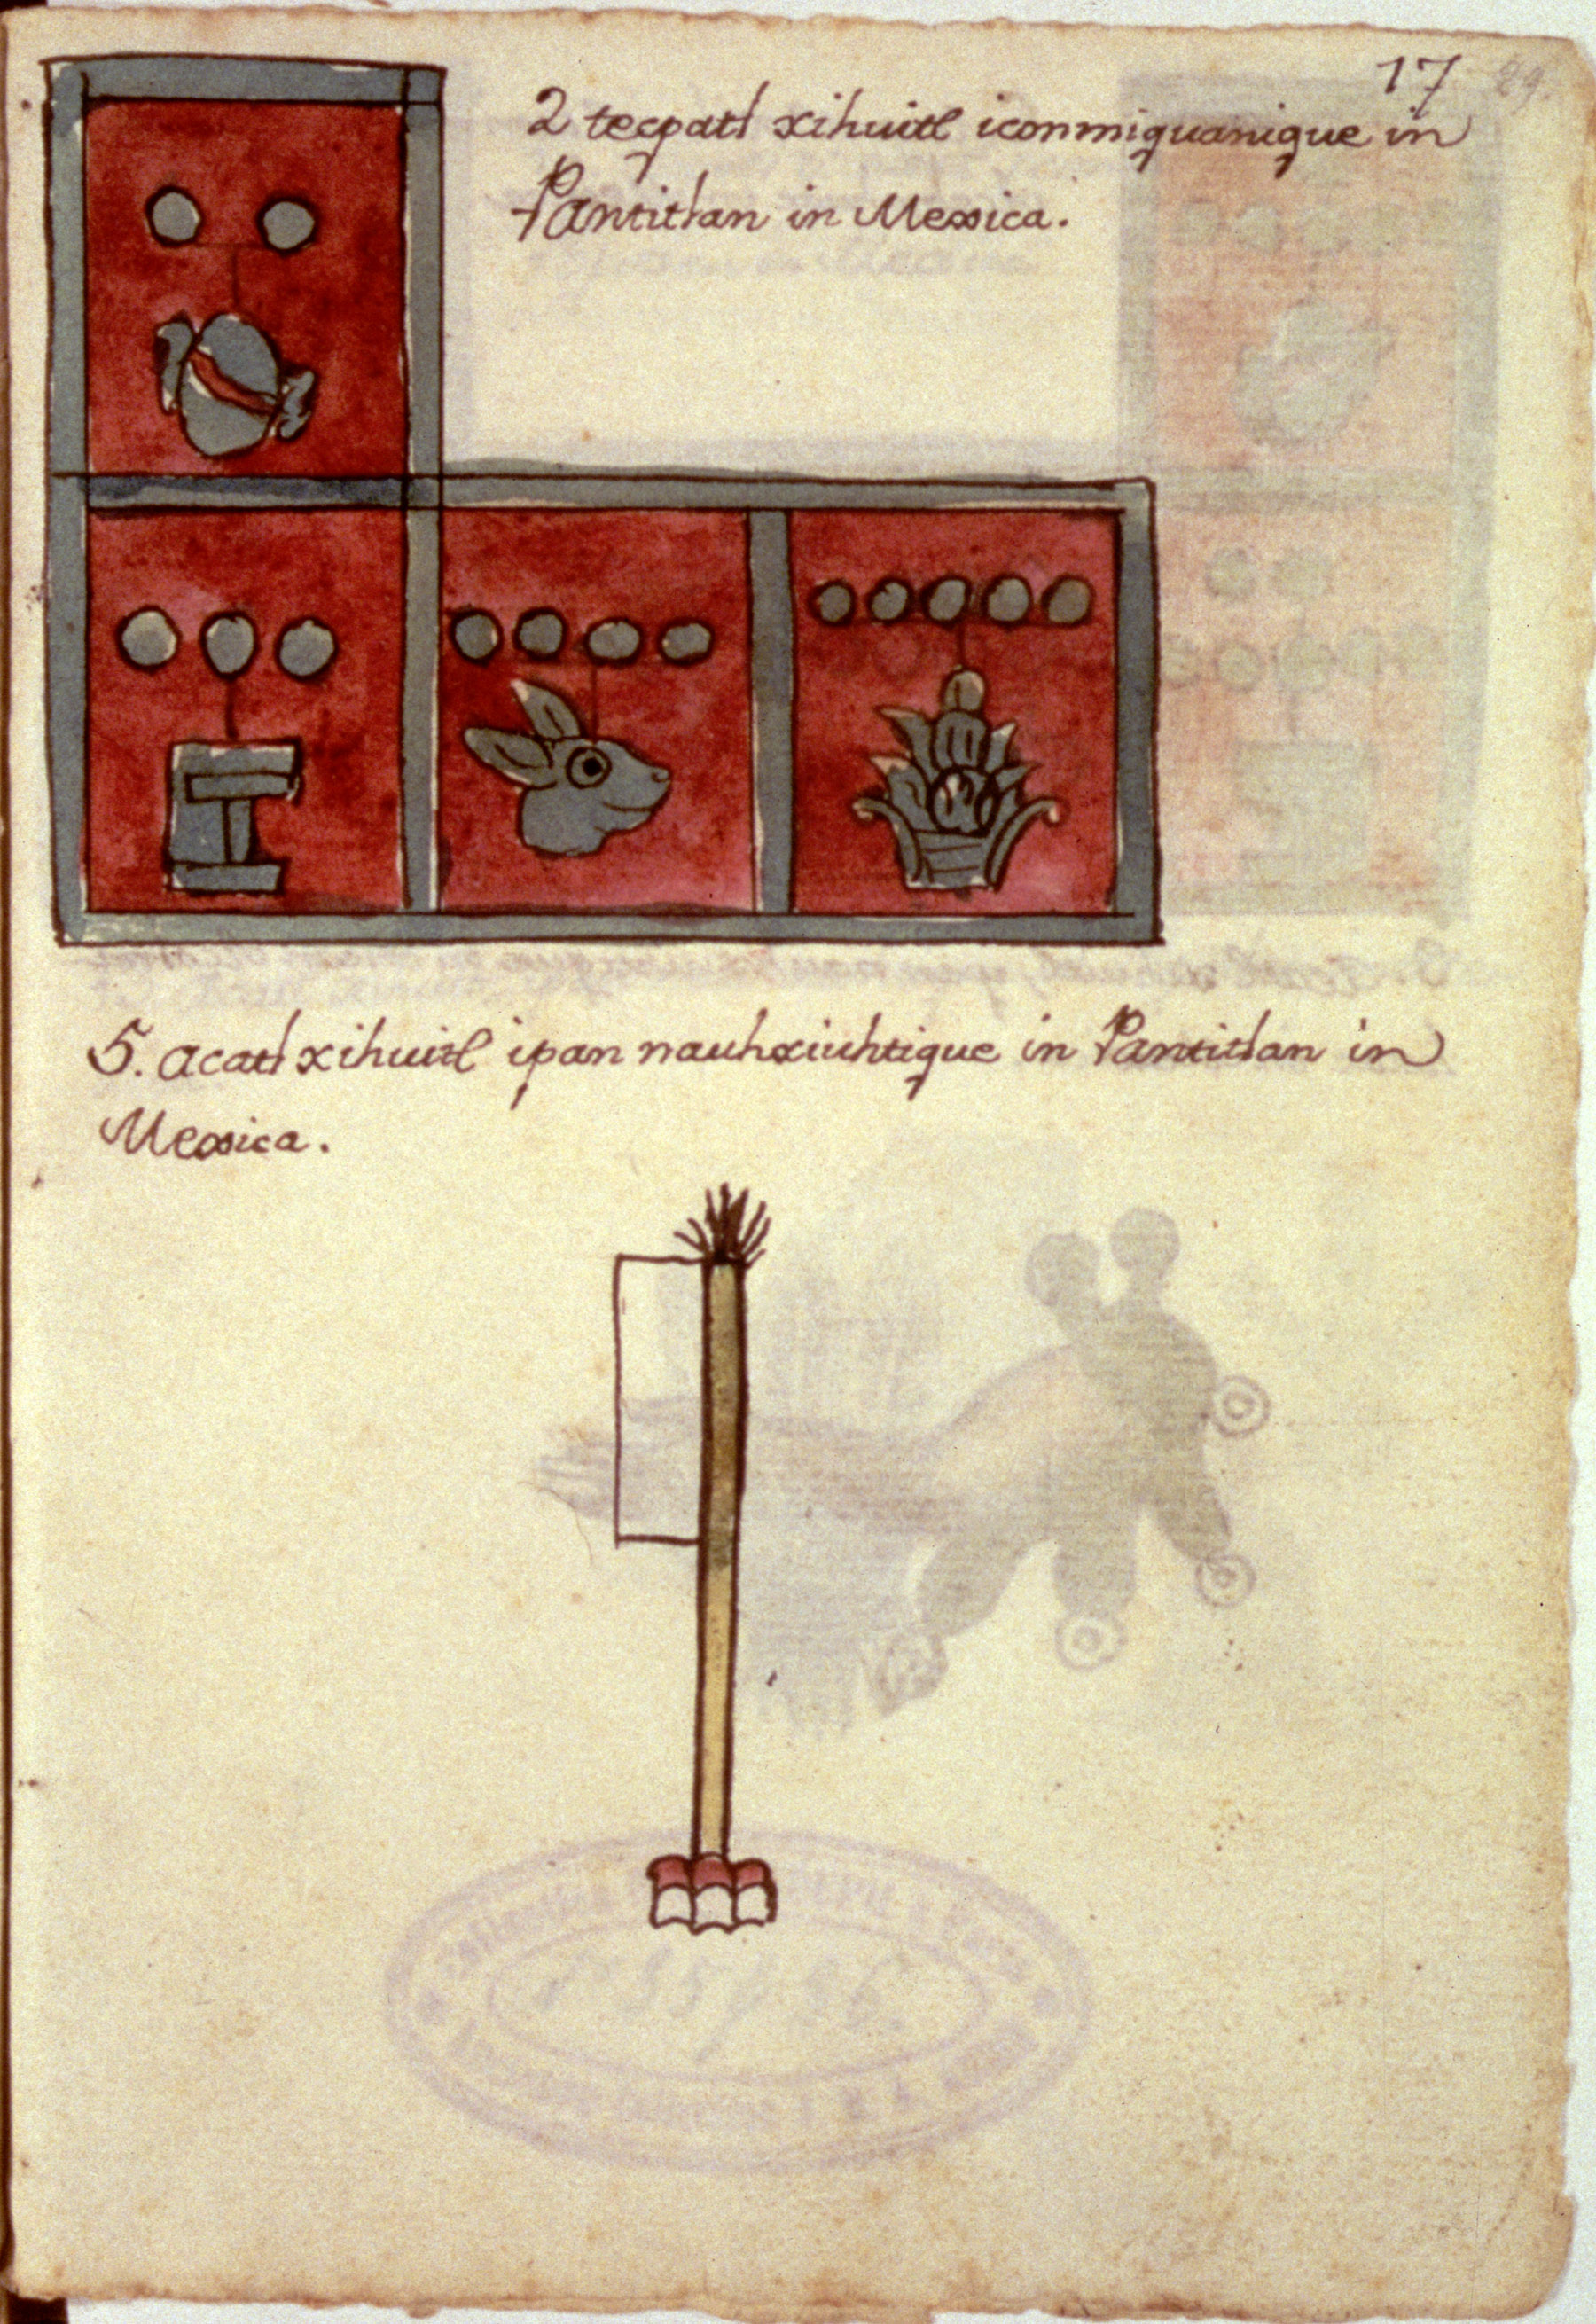 17 29.
2 tecpatl xihuitl iconmiquanique in
Pantitlan in Mexica.
5. acatl xihuitl ipan nauhxiuhtique in Pantitlan in
Mexica.